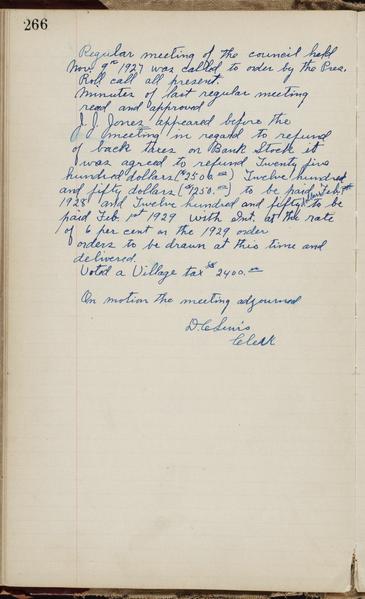 266
Regular meeting of the council held
Nov 9th 1927 was called to order by the Pres.
Roll call all present.
Minutes of last regular meeting
read and approved
J. J. Jones appeared before the
meeting in regard to refund
of back taxes on Bank Stock it
was agreed to refund Twenty five
hundred dollars ($2500.00) Twelve hundred
and fifty dollars ($1250.00) to be paid Feb. 1st
1928 and Twelve hundred and fifty to be
paid Feb. 1st 1929 with Int. at the rate
of 6 per cent on the 1929 order
orders to be drawn at this time and
delivered.
Voted a Village tax $ 2400.00
On motion the meeting adjourned
D. C. Lewis
Clerk